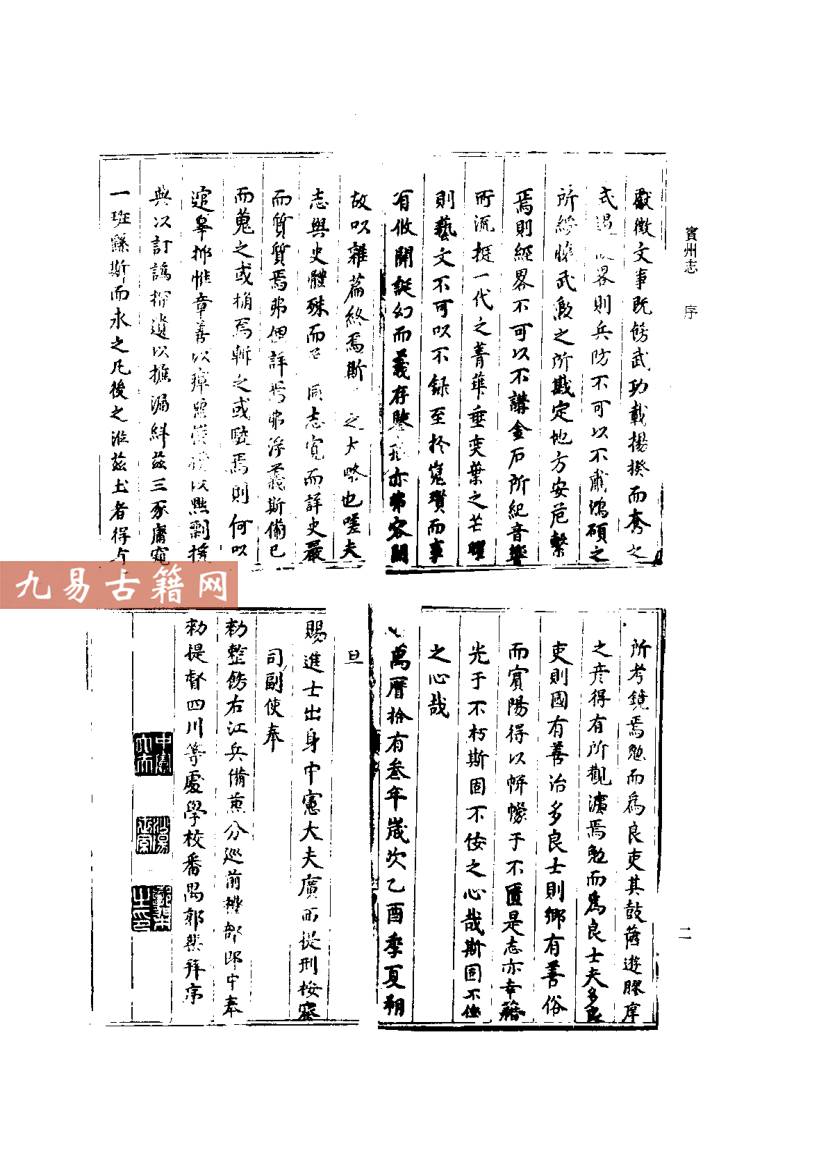 賓州志 序
獻徵文事既飭武功載揚揆而奮之
則兵防不可以不嚴鴻碩之
所經惟武殿之所戡定地方安危繫
焉則經畧不可以不講金石所紀音響
所流挺一代之菁華垂奕葉之芒曜
則藝文不可以不録至於瑣而事
有攸關誕幻而義存亦弗容闕
故以雜篇終焉斯之大略也嗟夫
志與史體殊而同志寛而詳史嚴
而質質焉弗俚詳焉弗浮義斯備已
而蒐之或稍焉辯之或焉則何以
章善以瘅以點剽
與以訂譌拾遺以摭漏糾兹三豕膚
一班繇斯而永之凡後之涖兹土者得有
所考鏡焉勉而為良吏其鼓篋遊膠庠
之彦得有所觀濡焉勉而為良士夫多良
吏則國有善治多良士則鄉有善俗
而賓陽得以帡幪于不匱是志亦幸藉
光于不朽斯固不佞之心哉斯固不佞
之心哉
萬曆拾有叁年歲次乙酉季夏朔
旦
賜進士出身中憲大夫廣西提刑按察
司副使奉
勑整飭右江兵備兼分巡前禮部郎中奉
勑提督四川等處學校番禺郭棐拜序
二
九易古籍网